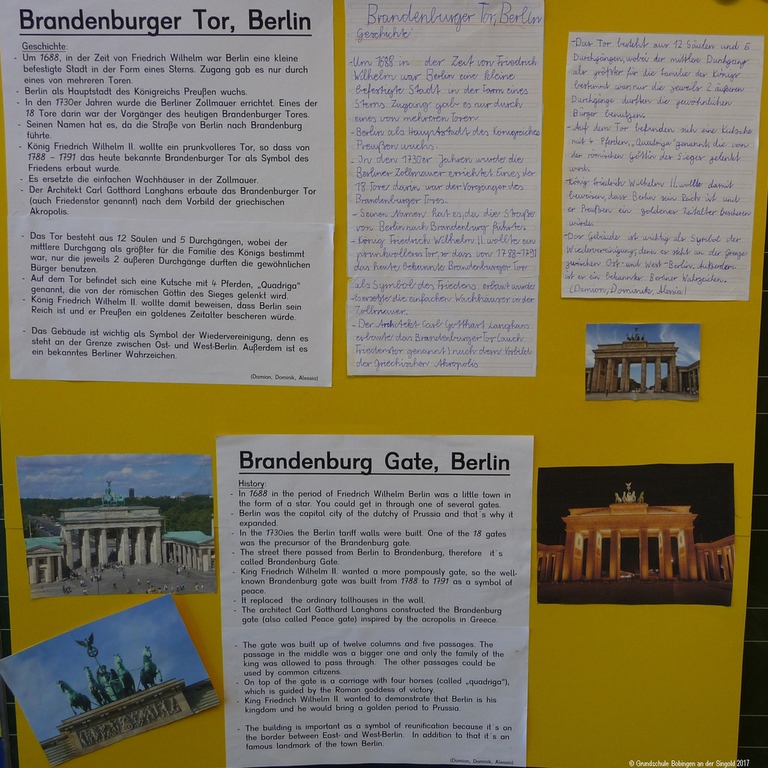 Brandenburger Tor, Berlin
Geschichte:
- Um 1688, in der Zeit von Friedrich Wilhelm war Berlin eine kleine
befestigte Stadt in der Form eines Sterns. Zugang gab es nur durch
eines von mehreren Toren.
- Berlin als Hauptstadt des Königreichs Preußen wuchs.
- In den 1730er Jahren wurde die Berliner Zollmauer errichtet. Eines der
18 Tore darin war der Vorgänger des heutigen Brandenburger Tores.
- Seinen Namen hat es, da die Straße von Berlin nach Brandenburg
führte.
- König Friedrich Wilhelm II. wollte ein prunkvolleres Tor, so dass von
1788 - 1791 das heute bekannte Brandenburger Tor als Symbol des
Friedens erbaut wurde.
- Es ersetzte die einfachen Wachhäuser in der Zollmauer.
- Der Architekt Carl Gotthard Langhans erbaute das Brandenburger Tor
(auch Friedenstor genannt) nach dem Vorbild der griechischen
Akropolis.
- Das Tor besteht aus 12 Säulen und 5 Durchgängen, wobei der
mittlere Durchgang als größter für die Familie des Königs bestimmt
war, nur die jeweils 2 äußeren Durchgänge durften die gewöhnlichen
Bürger benutzen.
- Auf dem Tor befindet sich eine Kutsche mit 4 Pferden, „Quadriga"
genannt, die von der römischen Göttin des Sieges gelenkt wird.
- König Friedrich Wilhelm II. wollte damit beweisen, dass Berlin sein
Reich ist und er Preußen ein goldenes Zeitalter bescheren würde.
- Das Gebäude ist wichtig als Symbol der Wiedervereinigung, denn es
steht an der Grenze zwischen Ost- und West-Berlin. Außerdem ist es
ein bekanntes Berliner Wahrzeichen.
(Damian, Dominik, Alessio)
Brandenburger Tor, Berlin
Geschichte
-Um 1688 in der Zeit von Friedrich
Wilhelm war Berlin eine kleine
befestigte Stadt in der Form eines
Sterns. Zugang gab es nur durch
eines von mehreren Toren
-Berlin als Hauptstadt des Königreiches
Preußen wuchs.
-In den 1730er Jahren wurde die
Berliner Zollmauer errichtet. Eines der
18. Tore darin war der Vorgänger des
Brandenburger Tores.
- Seinen Namen hat es, da die Straße
von Berlin nach Brandenburg führte.
-König Friedrich Wilhelm II. wollte ein
prunkvolleres Tor, so dass von 1788-1791
das heute bekannte Brandenburger Tor
als Symbol des Friedens erbaut wurde
-Es ersetzte die einfachen Wachhäuser in der
Zollmauer.
-Der Architekt Carl Gotthart Langhans
erbaute das Brandenburger Tor (auch
Friedenstor genannt) nach dem Vorbild
der Griechischen Akropolis
-Das Tor besteht aus 12 Säulen und 5
Durchgängen, wobei der mittlere Durchgang
als größter für die Familie des Königs
bestimmt war, nur die jeweils 2 äußeren
Durchgänge durften die gewöhnlichen
Bürger benutzen.
-Auf dem Tor befinden sich eine Kutsche
mit 4 Pferden, „Quadriga" genannt, die von
der römischen Göttin der Sieges gelenkt
wird.
-König Friedrich Wilhelm II. wollte damit
beweisen, dass Berlin sein Reich ist und
er Preußen ein goldenes Zeitalter bescheren
würde.
-Das Gebäude ist wichtig als Symbol der
Wiedervereinigung, denn es steht an der Grenze
zwischen Ost- und West-Berlin. Außerdem
ist er ein bekanntes Berliner Wahrzeichen.
(Damian, Dominik, Alessio)
Brandenburg Gate, Berlin
History:
- In 1688 in the period of Friedrich Wilhelm Berlin was a little town in
the form of a star. You could get in through one of several gates.
- Berlin was the capital city of the dutchy of Prussia and that's why it
expanded.
- In the 1730ies the Berlin tariff walls were built. One of the 18 gates
was the precursor of the Brandenburg gate.
- The street there passed from Berlin to Brandenburg, therefore it's
called Brandenburg Gate.
- King Friedrich Wilhelm II. wanted a more pompously gate, so the well-
known Brandenburg gate was built from 1788 to 1791 as a symbol of
peace.
- It replaced the ordinary tollhouses in the wall.
- The architect Carl Gotthard Langhans constructed the Brandenburg
gate (also called Peace gate) inspired by the acropolis in Greece.
- The gate was built up of twelve columns and five passages. The
passage in the middle was a bigger one and only the family of the
king was allowed to pass through. The other passages could be
used by common citizens.
- On top of the gate is a carriage with four horses (called „quadriga"),
which is guided by the Roman goddess of victory.
- King Friedrich Wilhelm II. wanted to demonstrate that Berlin is his
kingdom and he would bring a golden period to Prussia.
- The building is important as a symbol of reunification because it's on
the border between East- and West-Berlin. In addition to that it's an
famous landmark of the town Berlin.
(Damian, Dominik, Alessio)
© Grundschule Bobingen an der Singold 2017